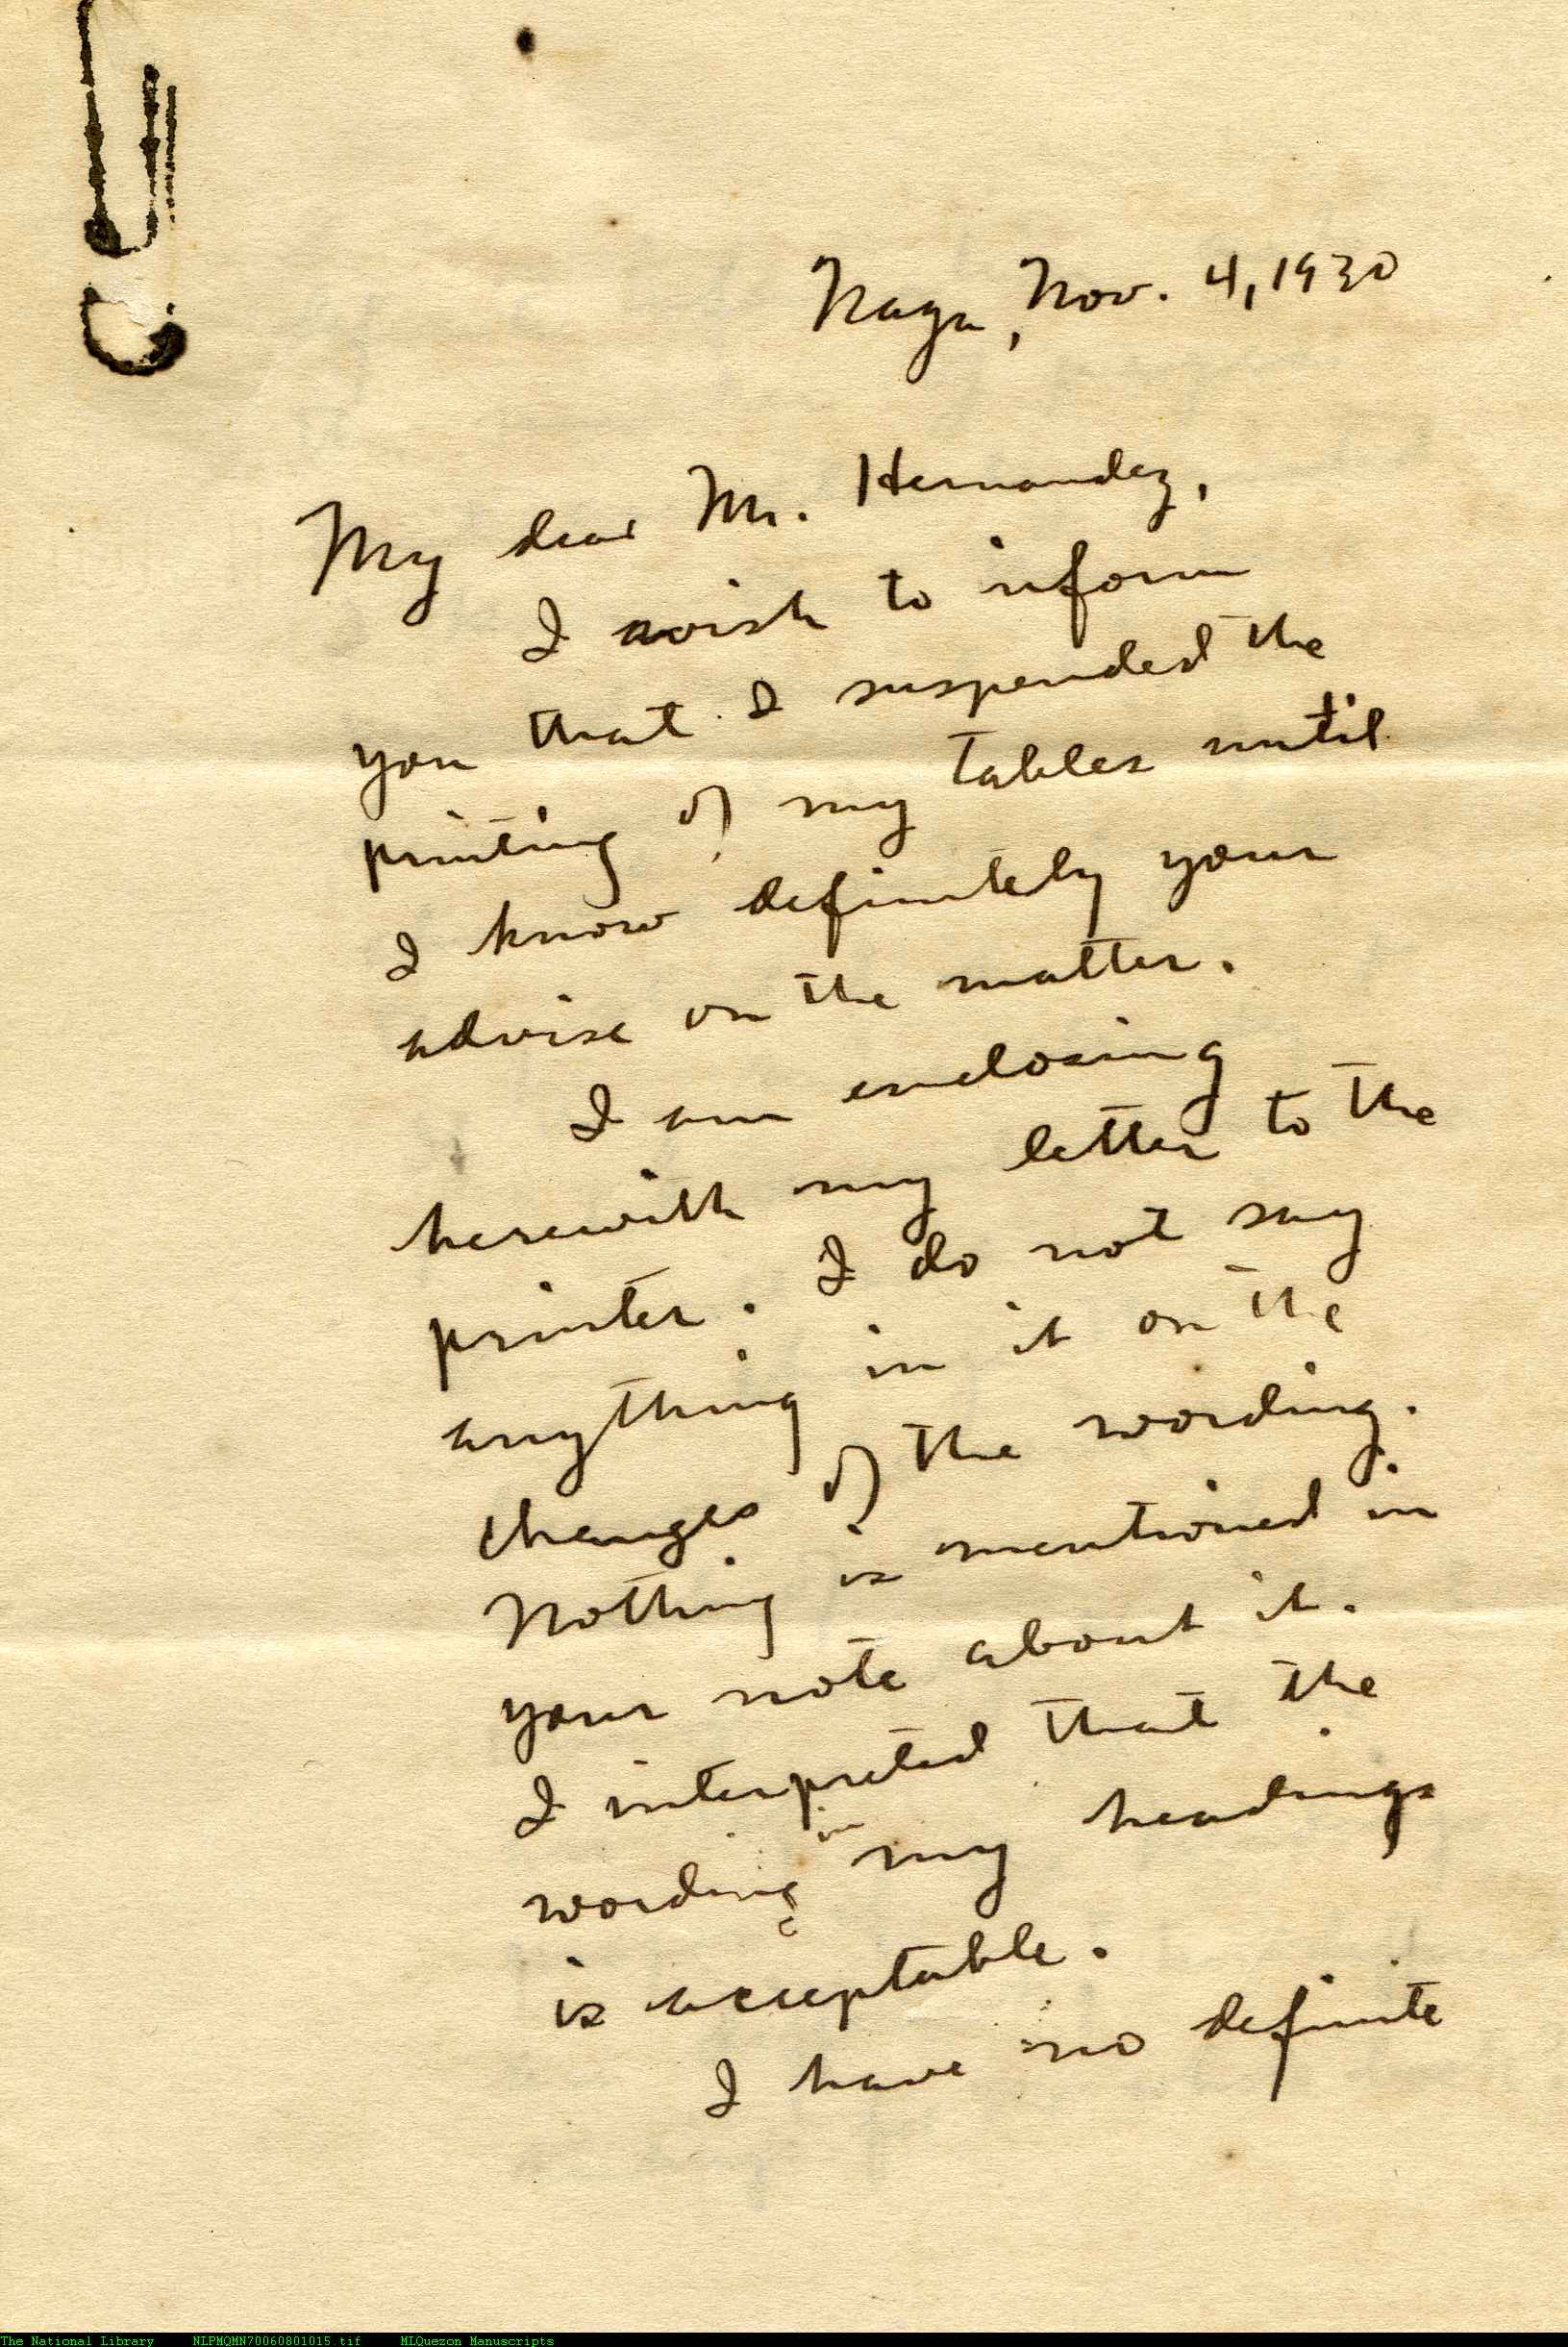 Naga, Nov. 4, 1930
My dear Mr. Hernandez,
I wish to inform
you that I suspended the
printing of my tables until
I know definitely your
advise on the matter.
I am enclosing
herewith my letter to the
printer. I do not say
anything in it on the
changes of the wording.
Nothing is mentioned in
your note about it.
I interpreted that the
wording in my headings
is acceptable.
I have no definite
The National Library NLPMQMN70060801015.tif MLQuezon Manuscripts